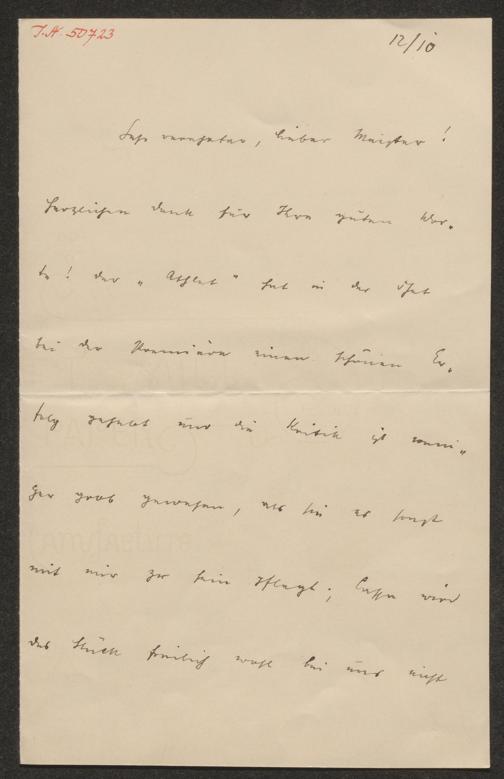 I.N. 50723
12/10
Sehr verehrter, lieber Meister!
Herzlichen Dank für Ihre guten Wor-
te! Der „Athlet" hat in der That
bei der Première einen schönen Er-
folg gehabt und die Kritik ist weni-
ger grob gewesen, als sie es sonst
mit mir zu sein pflegt; Cassa wird
das Stück freilich wohl bei uns nicht